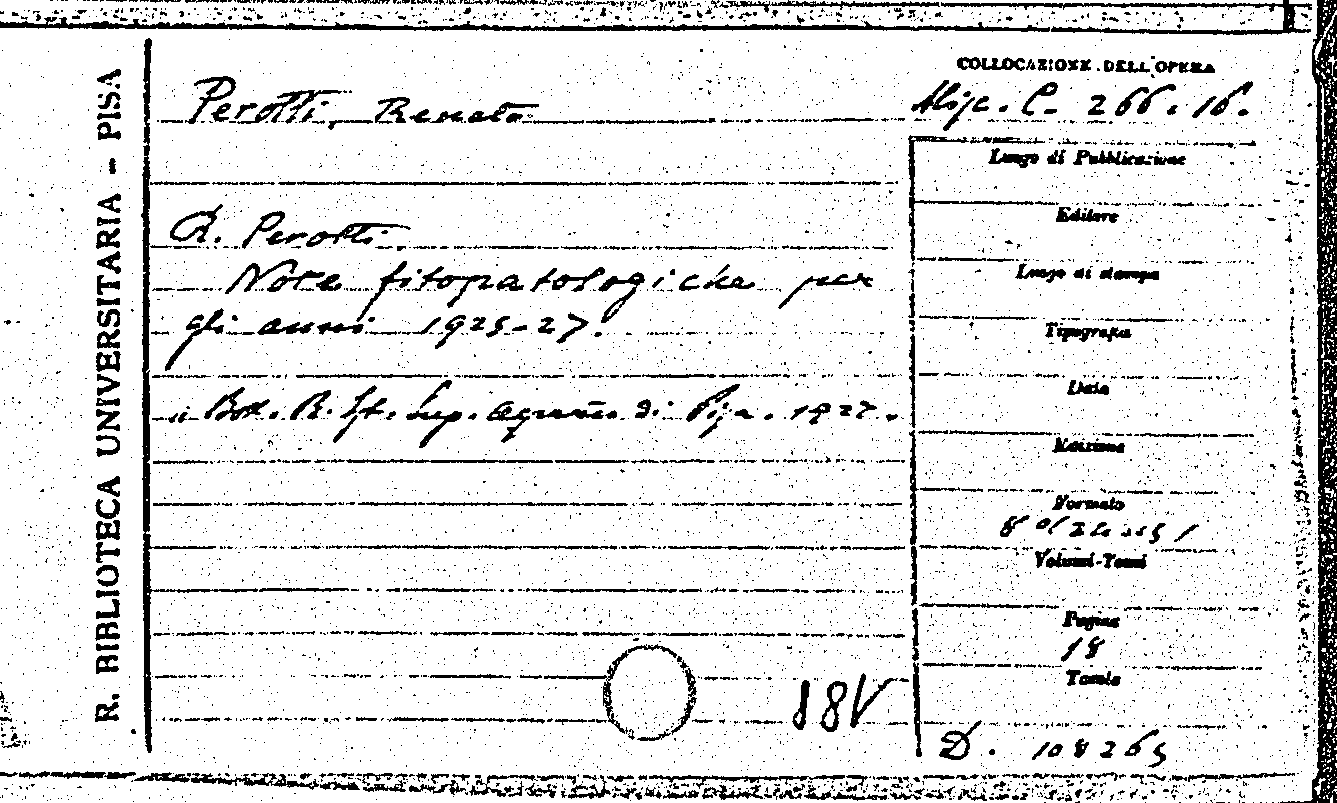 R. BIBLIOTECA UNIVERSITARIA - PISA
COLLOCAZIONE DELL'OPERA
Perotti, Renato
Misc. C. 266. 16.
Luogo di Pubblicazione
R. Perotti
Editore
Note fitopatologiche per
Luogo di stampa
gli anni 1925-27.
Tipografia
Data
Bot. R. Ist. Sup. Agrario di Pisa. 1927.
Edizione
Formato
8°
Volumi-Tomi
Pagine
18
Tavole
188V
D. 108265